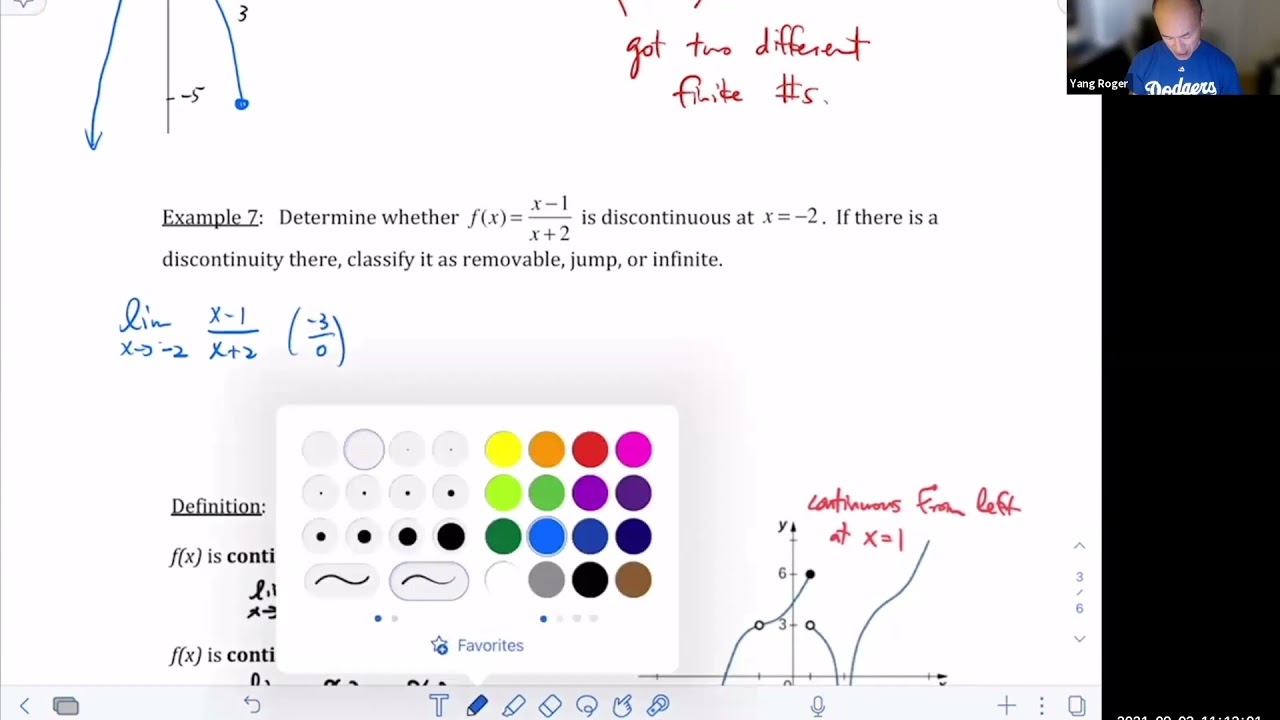 3
-5
got two different
finite #s.
Yang Roger
Dodgers
Example 7: Determine whether f(x) = \frac{x-1}{x+2} is discontinuous at x = -2. If there is a
discontinuity there, classify it as removable, jump, or infinite.
lim x→-2 \frac{x-1}{x+2} (\frac{-3}{0})
Definition:
continuous from left
at x=1
y
f(x) is conti
6
li
x→
3
3
/
6
Favorites
f(x) is conti
T